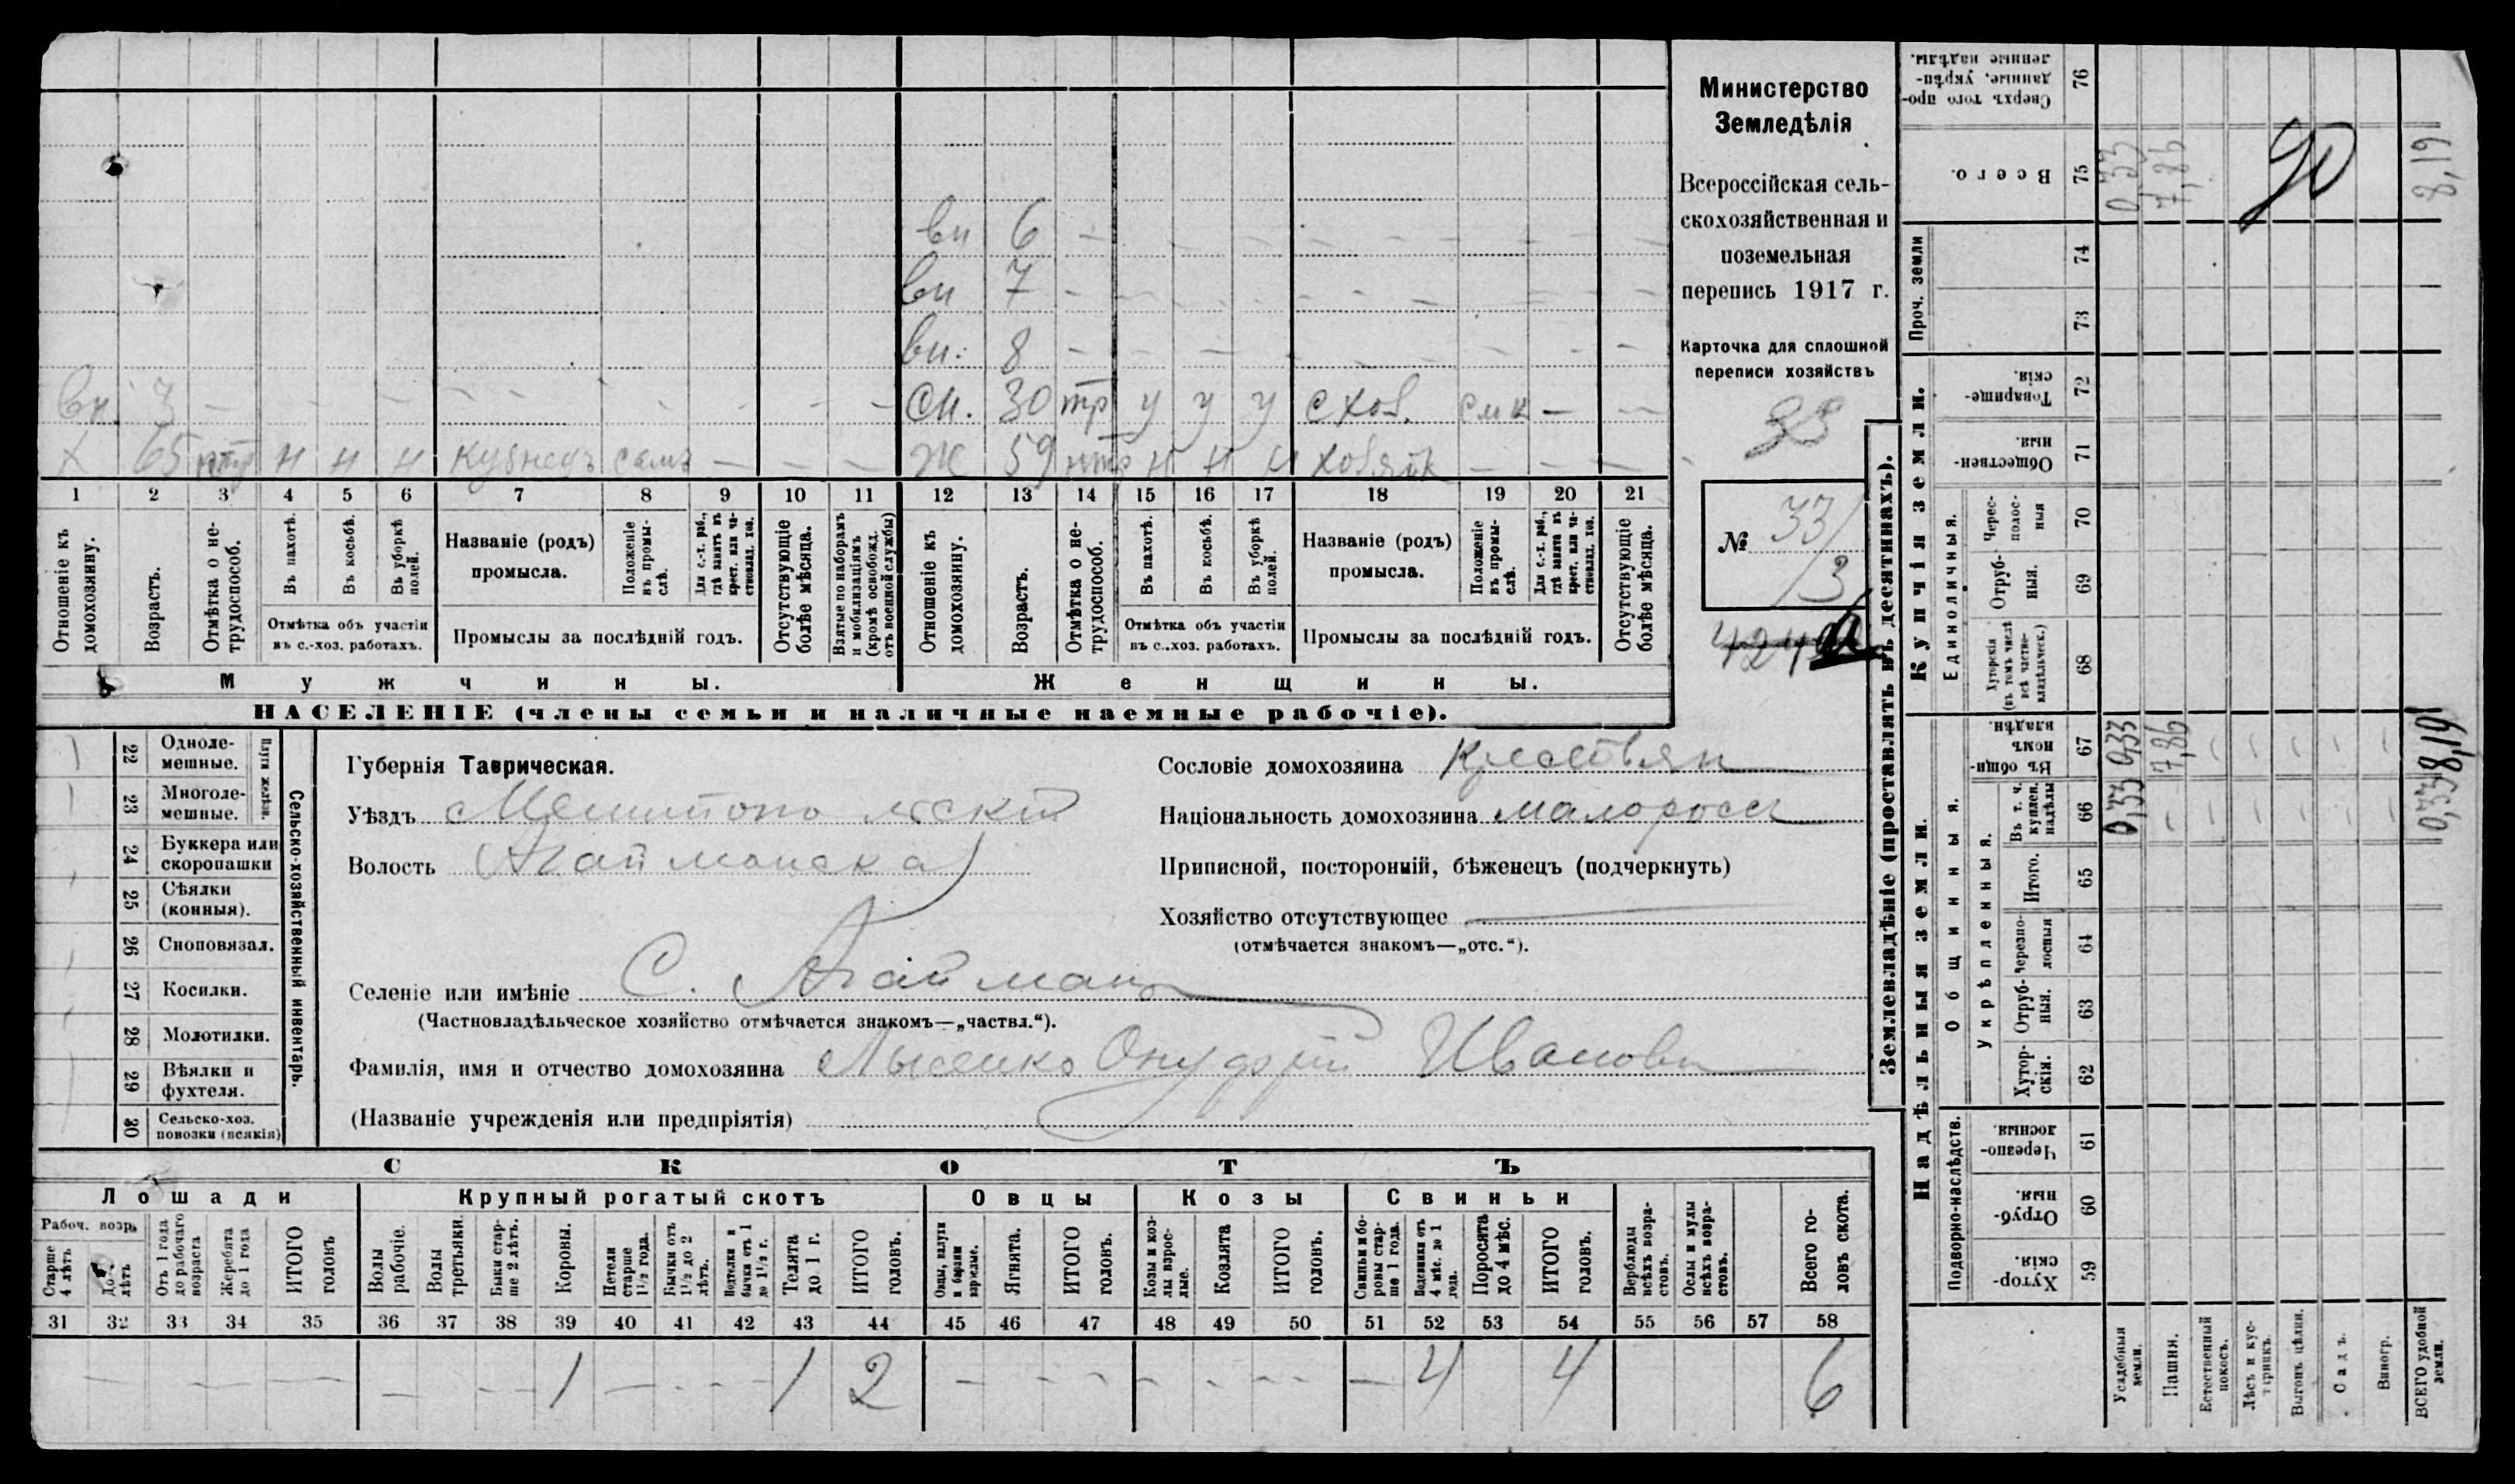 вн 6 - - - - - - - -
вн 7 - - - - - - - -
вн. 8 - - - - - - - -
вн. 3 - - - - - - - - - сн. 30 тр у у у с хоз. смк - -
Х 65 нтр н н н кузнецъ самъ - - - Ж 59 нтр н н н хозяйк - - -
1 2 3 4 5 6 7 8 9 10 11 12 13 14 15 16 17 18 19 20 21
Отношеніе къ домохозяину.
Возрастъ.
Отмѣтка о нетрудоспособ.
Въ пахотѣ.
Въ косьбѣ.
Въ уборкѣ полей.
Отмѣтка объ участіи въ с.-хоз. работахъ.
Названіе (родъ) промысла.
Положеніе въ промыслѣ.
Для с.-х. раб., гдѣ занятъ въ крест. или частновлад. хоз.
Промыслы за послѣдній годъ.
Отсутствующіе болѣе мѣсяца.
Взятые по наборамъ и мобилизаціямъ (кромѣ освобожд. отъ военной службы)
Отношеніе къ домохозяину.
Возрастъ.
Отмѣтка о нетрудоспособ.
Въ пахотѣ.
Въ косьбѣ.
Въ уборкѣ полей.
Отмѣтка объ участіи въ с..хоз. работахъ.
Названіе (родъ) промысла.
Положеніе въ промыслѣ.
Для с.-х. раб., гдѣ занята въ крест. или частновлад. хоз.
Промыслы за послѣдній годъ.
Отсутствующіе болѣе мѣсяца.
Мужчины.
Женщины.
НАСЕЛЕНІЕ (члены семьи и наличные наемные рабочіе).
Министерство
Земледѣлія
Всероссійская сель-
скохозяйственная и
поземельная
перепись 1917 г.
Карточка для сплошной
переписи хозяйствъ
33
№ 33/
/3
424
22 Одноле-
мешные.
23 Многоле-
мешные.
Плуги желѣзн.
24 Буккера или
скоропашки
25 Сѣялки
(конныя).
26 Сноповязал.
27 Косилки.
28 Молотилки.
29 Вѣялки и
фухтеля.
30 Сельско-хоз.
повозки (всякія)
Сельско-хозяйственный инвентарь.
Губернія Таврическая.
Уѣздъ Мелитопольскій
Волость Агайманска
Сословіе домохозяина Крестьян
Національность домохозяина малоросс
Приписной, посторонній, бѣженецъ (подчеркнуть)
Хозяйство отсутствующее
(отмѣчается знакомъ—„отс.“).
Селеніе или имѣніе С. Агайманъ
(Частновладѣльческое хозяйство отмѣчается знакомъ—„частвл.“).
Фамилія, имя и отчество домохозяина Лысенко Онуфрій Иванови
(Названіе учрежденія или предпріятія)
СКОТЪ
Лошади
Крупный рогатый скотъ
Овцы
Козы
Свиньи
Рабоч. возр.
Старше 4 лѣтъ
До 4 лѣтъ
Отъ 1 года до рабочаго возраста
Жеребята до 1 года
ИТОГО головъ
Волы рабочіе.
Волы третьяки.
Быки старше 2 лѣтъ.
Коровы.
Нетели старше 1½ года.
Бычки отъ 1½ до 2 лѣтъ.
Телята до 1 г.
ИТОГО головъ.
Ягнята.
ИТОГО головъ.
Козы и козлы взрослые.
Козлята
ИТОГО головъ.
Свиньи и боровы старше 1 года.
Поросята до 4 мѣс.
ИТОГО головъ.
Верблюды всѣхъ возрастовъ.
Ослы и мулы всѣхъ возрастовъ.
Всего головъ скота.
31 32 33 34 35 36 37 38 39 40 41 42 43 44 45 46 47 48 49 50 51 52 53 54 55 56 57 58
- - - - - - - 1 - - - 1 2 - - - - - - - 4 4 6
Землевладѣніе (проставлять въ десятинахъ).
Надѣльныя земли.
Купчія земли.
Проч. земли
Подворно-наслѣдств.
Общинныя.
Укрѣпленныя.
Единоличныя.
Хуторскія 59
Отрубныя. 60
Черезполосныя. 61
Хуторскія. 62
Отрубныя. 63
Черезполосныя 64
Итого. 65
Въ т. ч. куплен. надѣлы 66
Въ общинномъ владѣн. 67
Хуторскія (въ томъ числѣ всѣ частновладѣльческ.) 68
Отрубныя. 69
Черезполосныя 70
Общественныя. 71
Товарищескія. 72
73
74
Всего. 75
Сверхъ того проданные, укрѣпленные надѣлы. 76
Усадебныя земли.
Пашня.
Естественный покосъ.
Лѣсъ и кустарникъ.
Выгонъ, цѣлин.
Садъ.
Виногр.
ВСЕГО удобной земли.
0,33 0,33 0,33
7,86 7,86
0,33 8,19 8,19